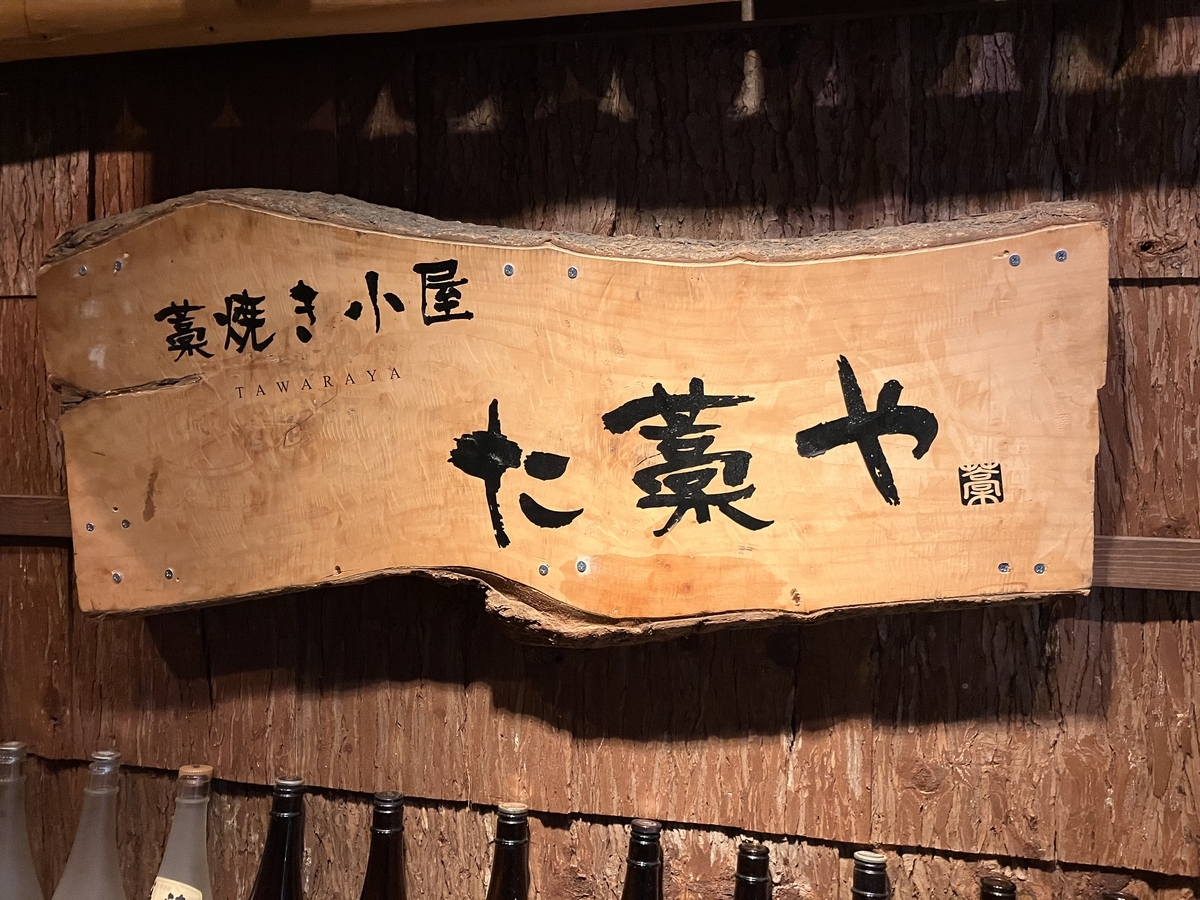 藁焼き小屋
TAWARAYA
た藁や
藁